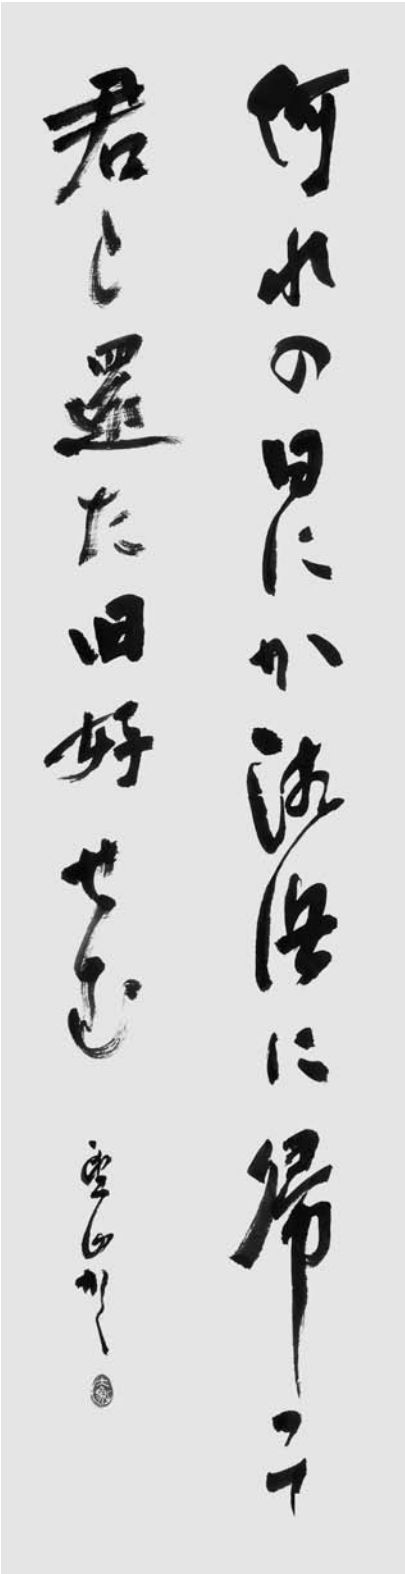 何れの日にか浜に帰って
君と還た旧好せむ